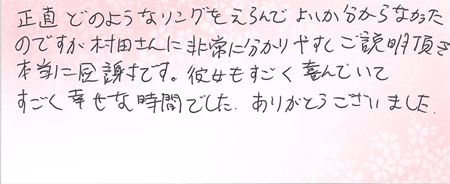 正直 どのようなリングをえらんで よいか分からなかった
のですが 村田さんに 非常に分かりやすくご説明頂き
本当に感謝です。彼女もすごく 喜んでいて
すごく 幸せな時間でした. ありがとうございました.